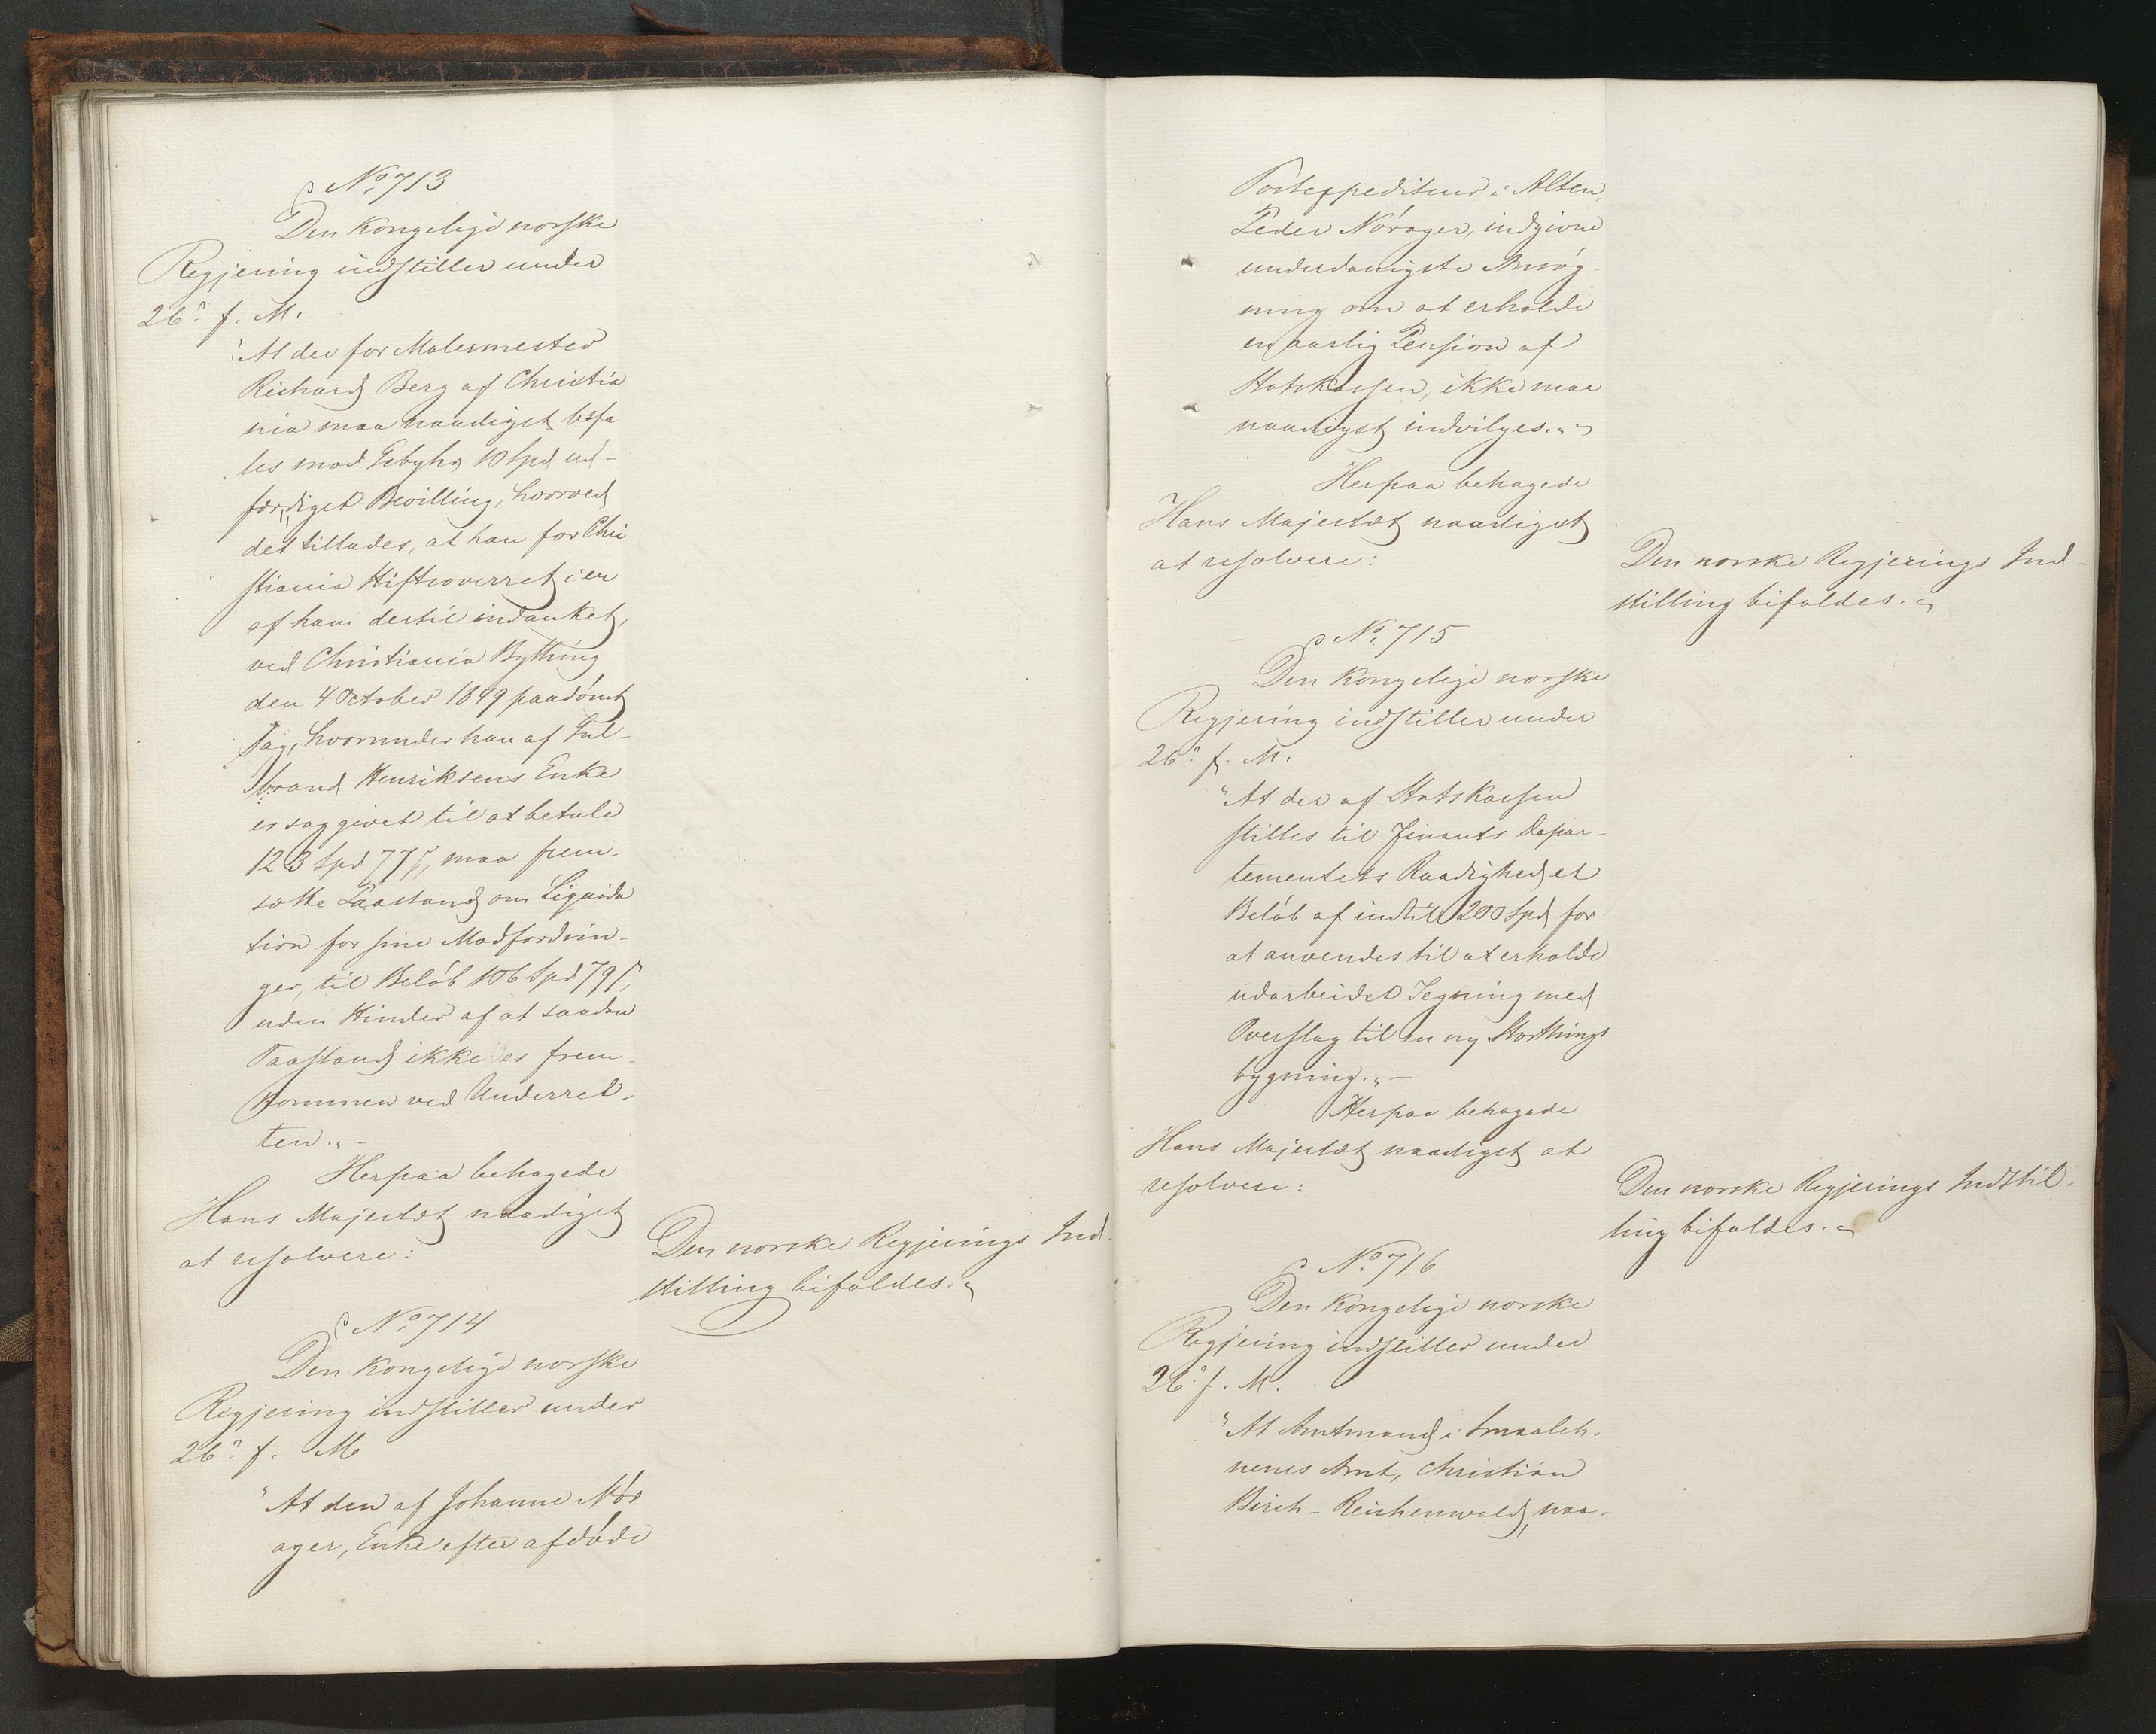 No 713
Den kongelige norske
Regjering indstiller under
26de f. M.
"At der for Malermester
Richard Berg af Christia
nia maa naadigst befa
les mod Gebyhr 10 Spd ud-
færdiget Bevilling, hvorved
det tillades, at han for Chri
stiania Stiftsoverret i en
af ham dertil indanket,
ved Christiania Bything
den 4 October 1849 paadømt
Sag, hvorunder han af Gul-
brand Henriksens Enke
er sag givet til at betale
123 Spd 77 s, maa frem-
sætte Paastand om Liqvida
tion for sine Modfordrin-
ger, til Beløb 106 Spd 79 s,
uden Hinder af at saadan
Paastand ikke er frem-
kommen ved Underret-
ten." -
Herpaa behagede
Hans Majestæt naadigst
at resolvere:
Den norske Regjerings Ind-
stilling bifaldes.
No 714
Den kongelige norske
Regjering indstiller under
26de f. M.
"At den af Johanne Nør
ager, Enke efter afdøde
Postexpediteur i Alten,
Peder Nørager, indgivne
underdanigste Ansøg-
ning om at erholde
en aarlig Pension af
Statskassen, ikke maa
naadigst indvilges."
Herpaa behagede
Hans Majestæt naadigst
at resolvere:
Den norske Regjerings Ind-
stilling bifaldes.
No 715
Den kongelige norske
Regjering indstiller under
26de f. M.
"At der af Statskassen
stilles til Finants Depar-
tementets Raadighed et
Beløb af indtil 200 Spd for
at anvendes til at erholde
udarbeidet Tegning med
Overslag til en ny Storthings
bygning." -
Herpaa behagede
Hans Majestæt naadigst at
resolvere:
Den norske Regjerings Indstil-
ling bifaldes.
No 716
Den kongelige norske
Regjering indstiller under
26de f. M.
"At Amtmand i Smaaleh-
nenes Amt, Christian
Birch-Reichenwald, naa-